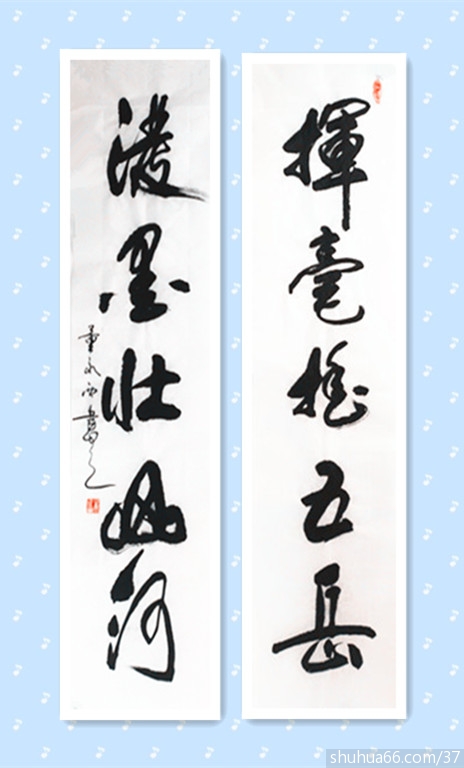 揮毫摇五岳
潑墨壮山河
shuhua66.com/37